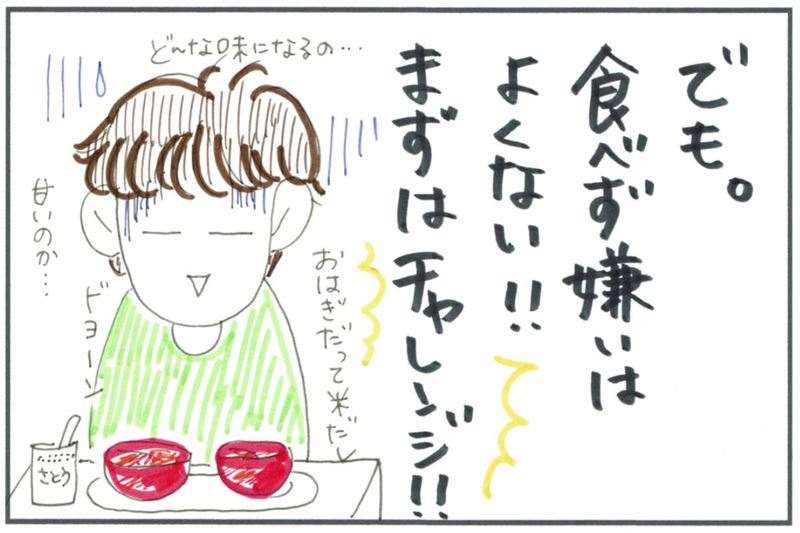 でも。
食べず嫌いは
よくない!!
まずはチャレンジ!!
どんな味になるの…
おはぎだって米だし
甘いのか…
ドヨーン
さとう